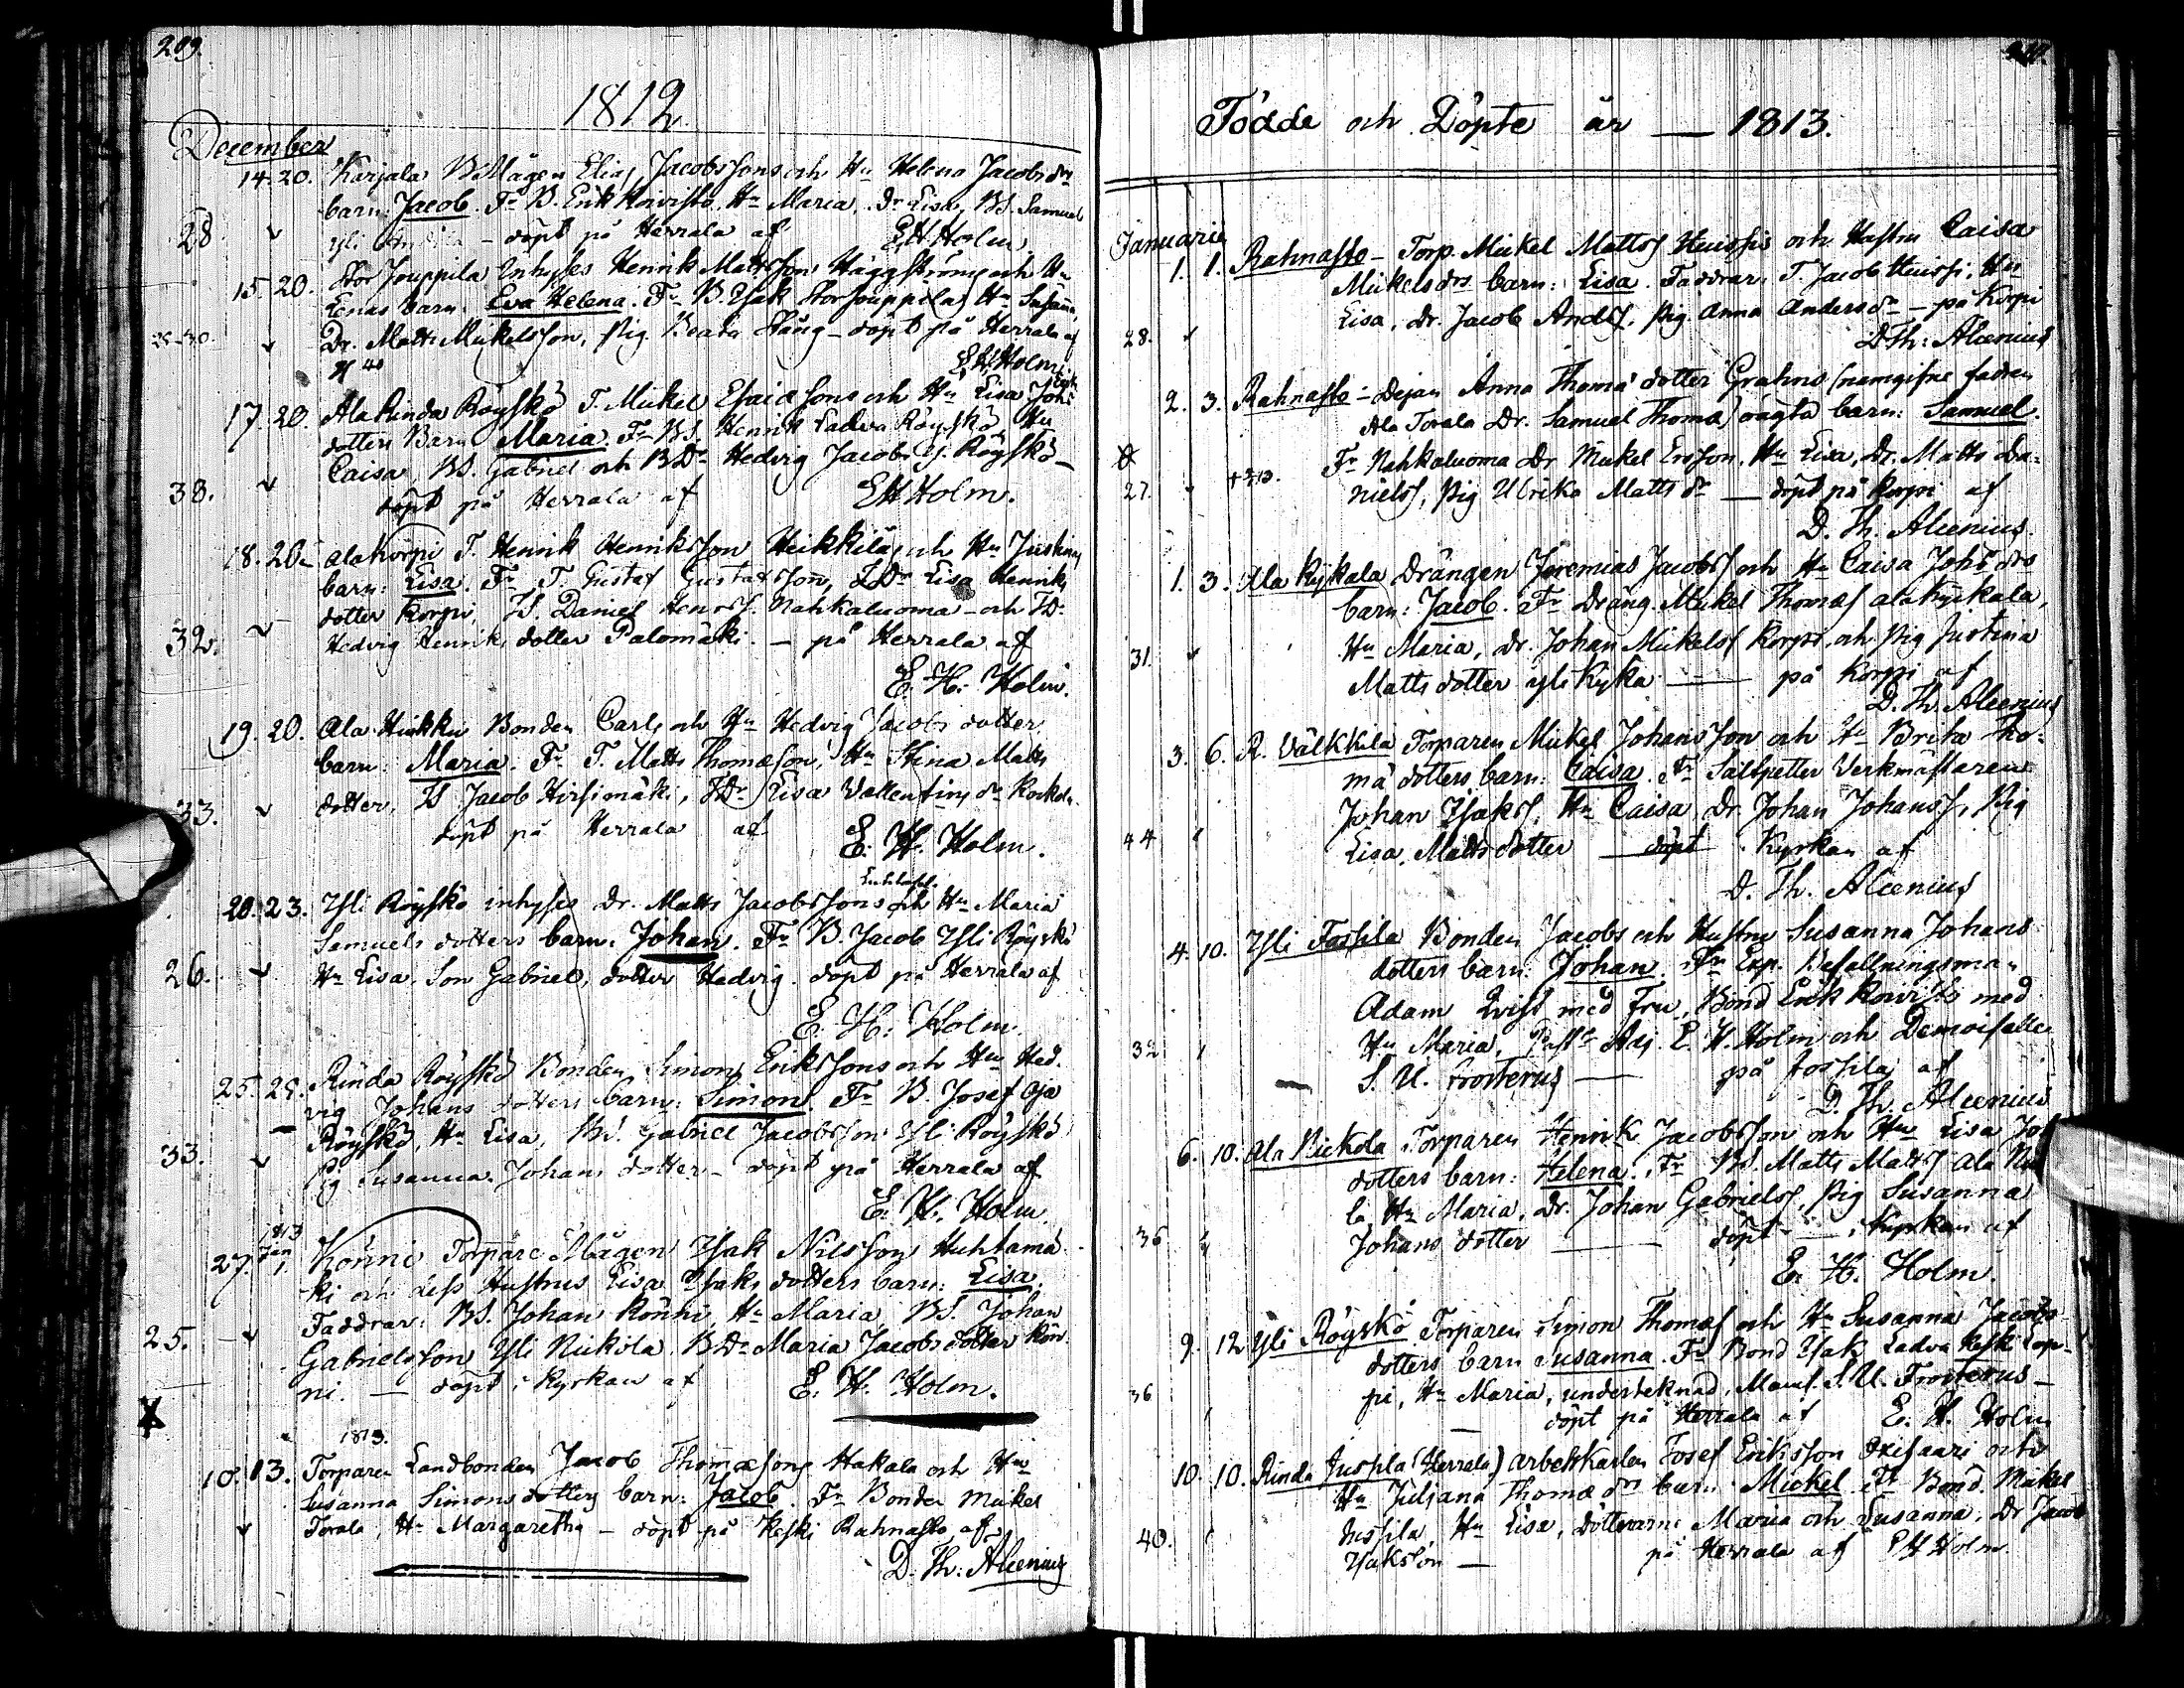 209.
1812
December
14. 20. Karjala BMågen Elias Jacobssons och Hu Helena Jacobs dr
barn: Jacob. Fr B. Erik Koivisto, Hu Maria, Dr Lisa, BS. Samuel
28 Yli - döpt på Herrala af EH Holm
15. 20. Stor Jouppila Inhyses Henrik Mattsson Häggströms och Hu
Lenas barn: Eva Helena. Fr B. Isak Storjouppila, Hu Susanna,
Dr. Matts Mickelsson, Pig. Beata Stång - döpt på Herrala af
EH Holm
17. 20. Ala Rinda Röyskö T. Mickel Esaiæsons och Hu Lisa Joh:
dotters Barn Maria. Fr BS. Henrik Ladva Röyskö, Hu
Caisa, BS. Gabriel och BDr Hedvig Jacobs Y. Röyskö -
38. döpt på Herrala af EH Holm.
18. 20. Ala Korpi T. Henrik Henriksson Heikkilä och Hu Justinas
barn: Lisa. Fr T. Gustaf Gustafsson, TDr Lisa Henriks
dotter Korpi, TS. Daniel Henrss. Nahkaluoma - och TDr
32. Hedvig Henriks dotter Palomäki. - på Herrala af
E. H. Holm.
19. 20. Ala Hirkki Bonden Carls och Hu Hedvig Jacobs dotter
barn: Maria. Fr T. Matts Thomæson, Hu Stina Matts
33. dotter, TS Jacob Hirsimäki, TDr Lisa Vallentins dr
döpt på Herrala af E. H. Holm.
20. 23. Yli Röyskö inhyses Dr. Matts Jacobssons och Hu Maria
Samuels dotters barn: Johan. Fr B. Jacob Yli Röyskö
26. Hu Lisa, Son Gabriel, dotter Hedvig. döpt på Herrala af
E. H. Holm.
25. 29. Rinda Röyskö Bonden Simon Erikssons och Hu Hed-
vig Johans dotters barn: Simon. Fr B. Josef Oja
Röyskö, Hu Lisa, BS. Gabriel Jacobsson Yli Röyskö
33. Pig Susanna Johans dotter - döpt på Herrala af
E. H. Holm.
1813
Jan
27. 1. Könni Torpare Mågen Isak Nilsson Huhtamä-
ki och dess Hustrus Lisa Isaks dotters barn: Lisa.
Faddrar: BS. Johan Könni, Hu Maria, BS. Johan
25. Gabrielsson Yli Nickola, BDr Maria Jacobs dotter Kön-
ni. - döpt i Kyrkan af E. H. Holm.
X
1813.
10. 13. Torparen Landbonden Jacob Thomæsons Hakala och Hu
Susanna Simons dotters barn: Jacob. Fr Bonden Mickel
Torala, Hu Margaretha - döpt på Keski Rahnasto af
D. Th: Alcenius
Födde och Döpte år — 1813.
Januarii
1. 1. Rahnasto - Torp. Mickel Matts Huissis och Hustru Caisa
Mickelsdrs barn: Lisa. Faddrar: T Jacob Huissi, Hu
Lisa, Dr. Jacob Anders, Pig. Anna Anders dr - på Korpi
28. DTh: Alcenius
2. 3. Rahnasto - Dejan Anna Thomæ dotter Grahns (namgifne fadren
Ala Torala Dr. Samuel Thomæ) oägta barn: Samuel.
Fr Nahkaluoma Dr Mickel Ersson, Hu Lisa, Dr. Matts Da-
27. niels, Pig Ulrika Matts dr - döpt på Korpi af
D. Th. Alcenius.
1. 3. Ala Kykala Drängen Jeremias Jacobs och Hu Caisa Johs drs
barn: Jacob. Fr Dräng. Mickel Thomæs ala Kyckala,
31. Hu Maria, Dr. Johan Mickels Korpi, och Pig Justina
Matts dotter yli Kyka — på Korpi af
D. Th. Alcenius
3. 6. R. Välkkilä Torparen Mickel Johansson och Hu Brita Tho-
mæ dotters barn: Caisa. Fr Saltpetter Verkmästaren
Johan Isaks, Hu Caisa, Dr. Johan Johans, Pig
44 Lisa Matts dotter — döpt i Kyrkan af
D. Th. Alcenius
4. 10. Yli Fossila Bonden Jacobs och Hustrus Susanna Johans
dotters barn: Johan. Fr Exp. Befallningsman
Adam Qvist med Fru, Bond Erik Koivisto med
32 Hu Maria, Past. Adj. E. H. Holm och Demoiselle
S. U. Frosterus — på Fossila af
D. Th. Alcenius
6. 10. Ala Nickola Torparen Henrik Jacobsson och Hu Lisa Jos
dotters barn: Helena. Fr BS. Matts Matts Ala Ni
la, Hu Maria, Dr. Johan Gabriels, Pig Susanna
36 Johans dotter — döpt — i Kyrkan af
E. H. Holm.
9. 12 Yli Röyskö Torparen Simon Thomæs och Hu Susanna Jacobs
dotters barn Susanna. Fr Bond Isak Ladva Keski Lop-
36 pi, Hu Maria, undertecknad, Mams. S. U. Frosterus -
döpt på Herrala af E. H. Holm
10. 10. Rinda Juspila (Herrala) arbetskarlen Josef Eriksson Oxisaari och
Hu Juliana Thomæ drs barn Mickel Fr Bond. Mickel
40. Juspila, Hu Lisa, Döttrarne Maria och Susanna, Dr Jacob
Isaksson — på Herrala af E H Holm.